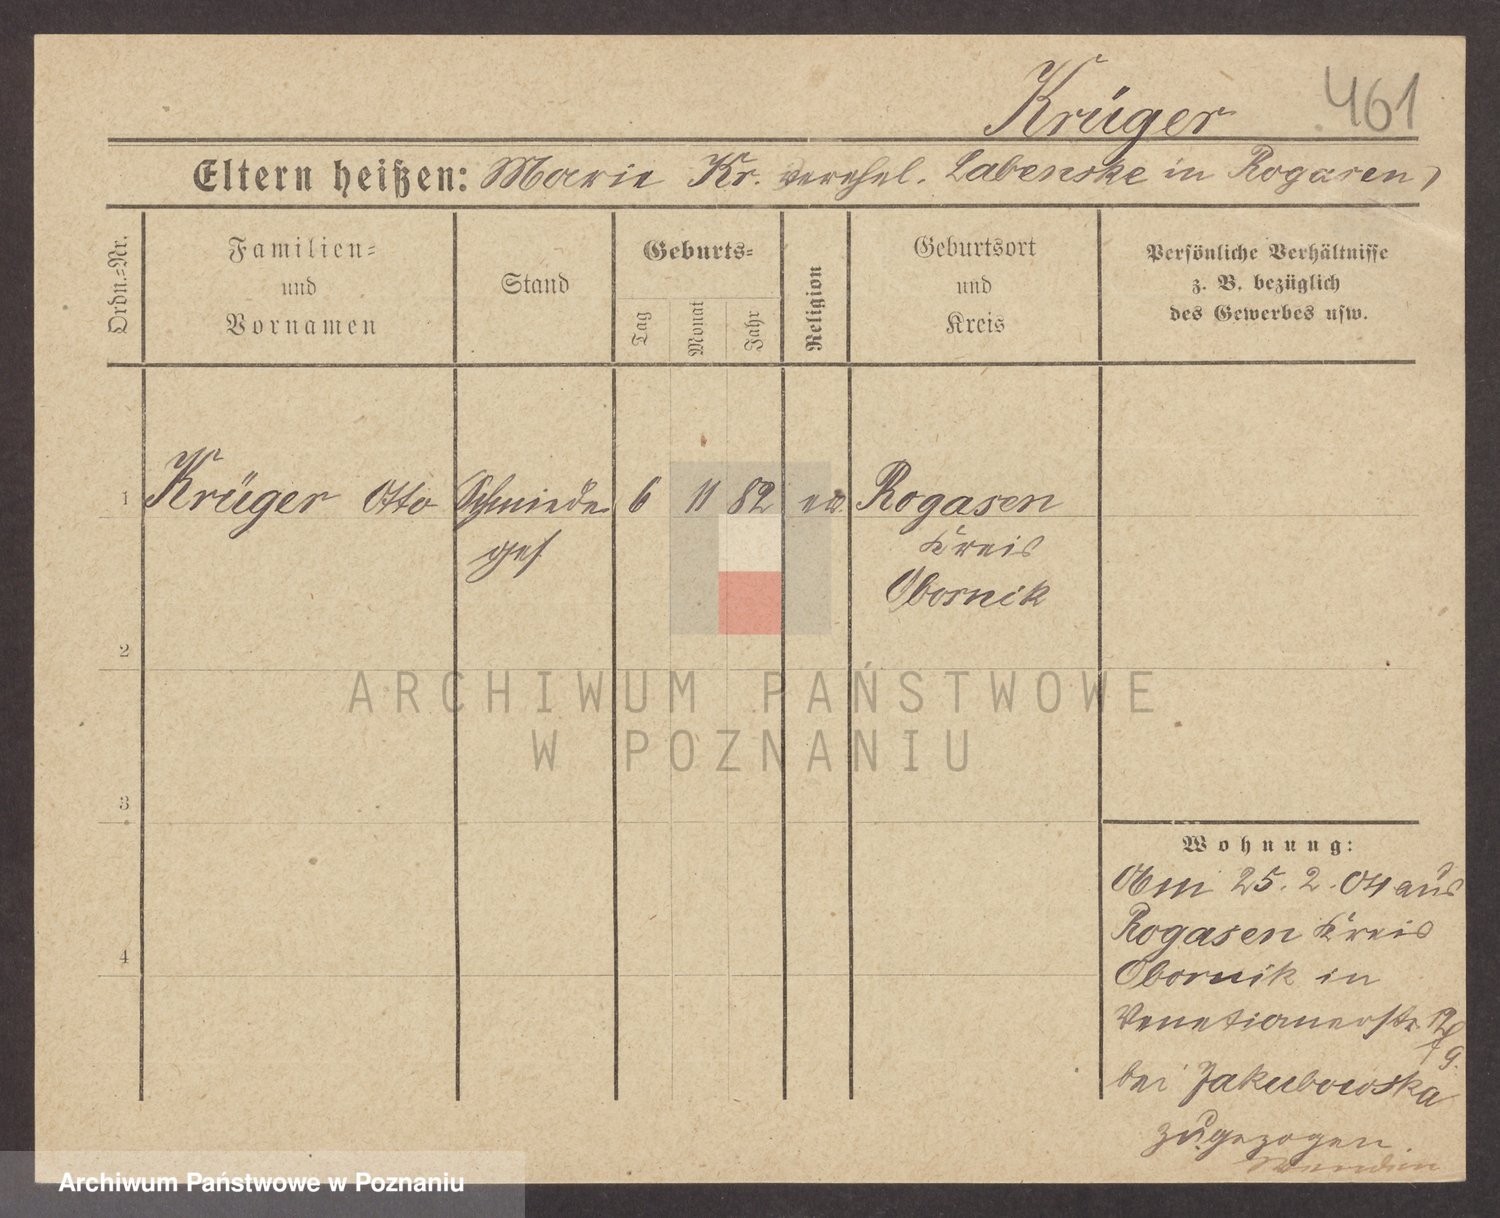 Krüger 461
Eltern heißen: Marie Kr. verehel. Labenske in Rogasen
Ordn.=Nr.
Familien=
und
Vornamen
Stand
Geburts=
Tag
Monat
Jahr
Religion
Geburtsort
und
Kreis
Persönliche Verhältnisse
z. B. bezüglich
des Gewerbes usw.
1 Krüger Otto Schmiede 6 11 82 ev Rogasen
ges Kreis
Obornik
2
ARCHIWUM PAŃSTWOWE
W POZNANIU
3
Wohnung:
Am 25. 2. 04 aus
Rogasen Kreis
4
Obornik in
Venetianerstr
bei Jakubowska
zugezogen.
Archiwum Państwowe w Poznaniu